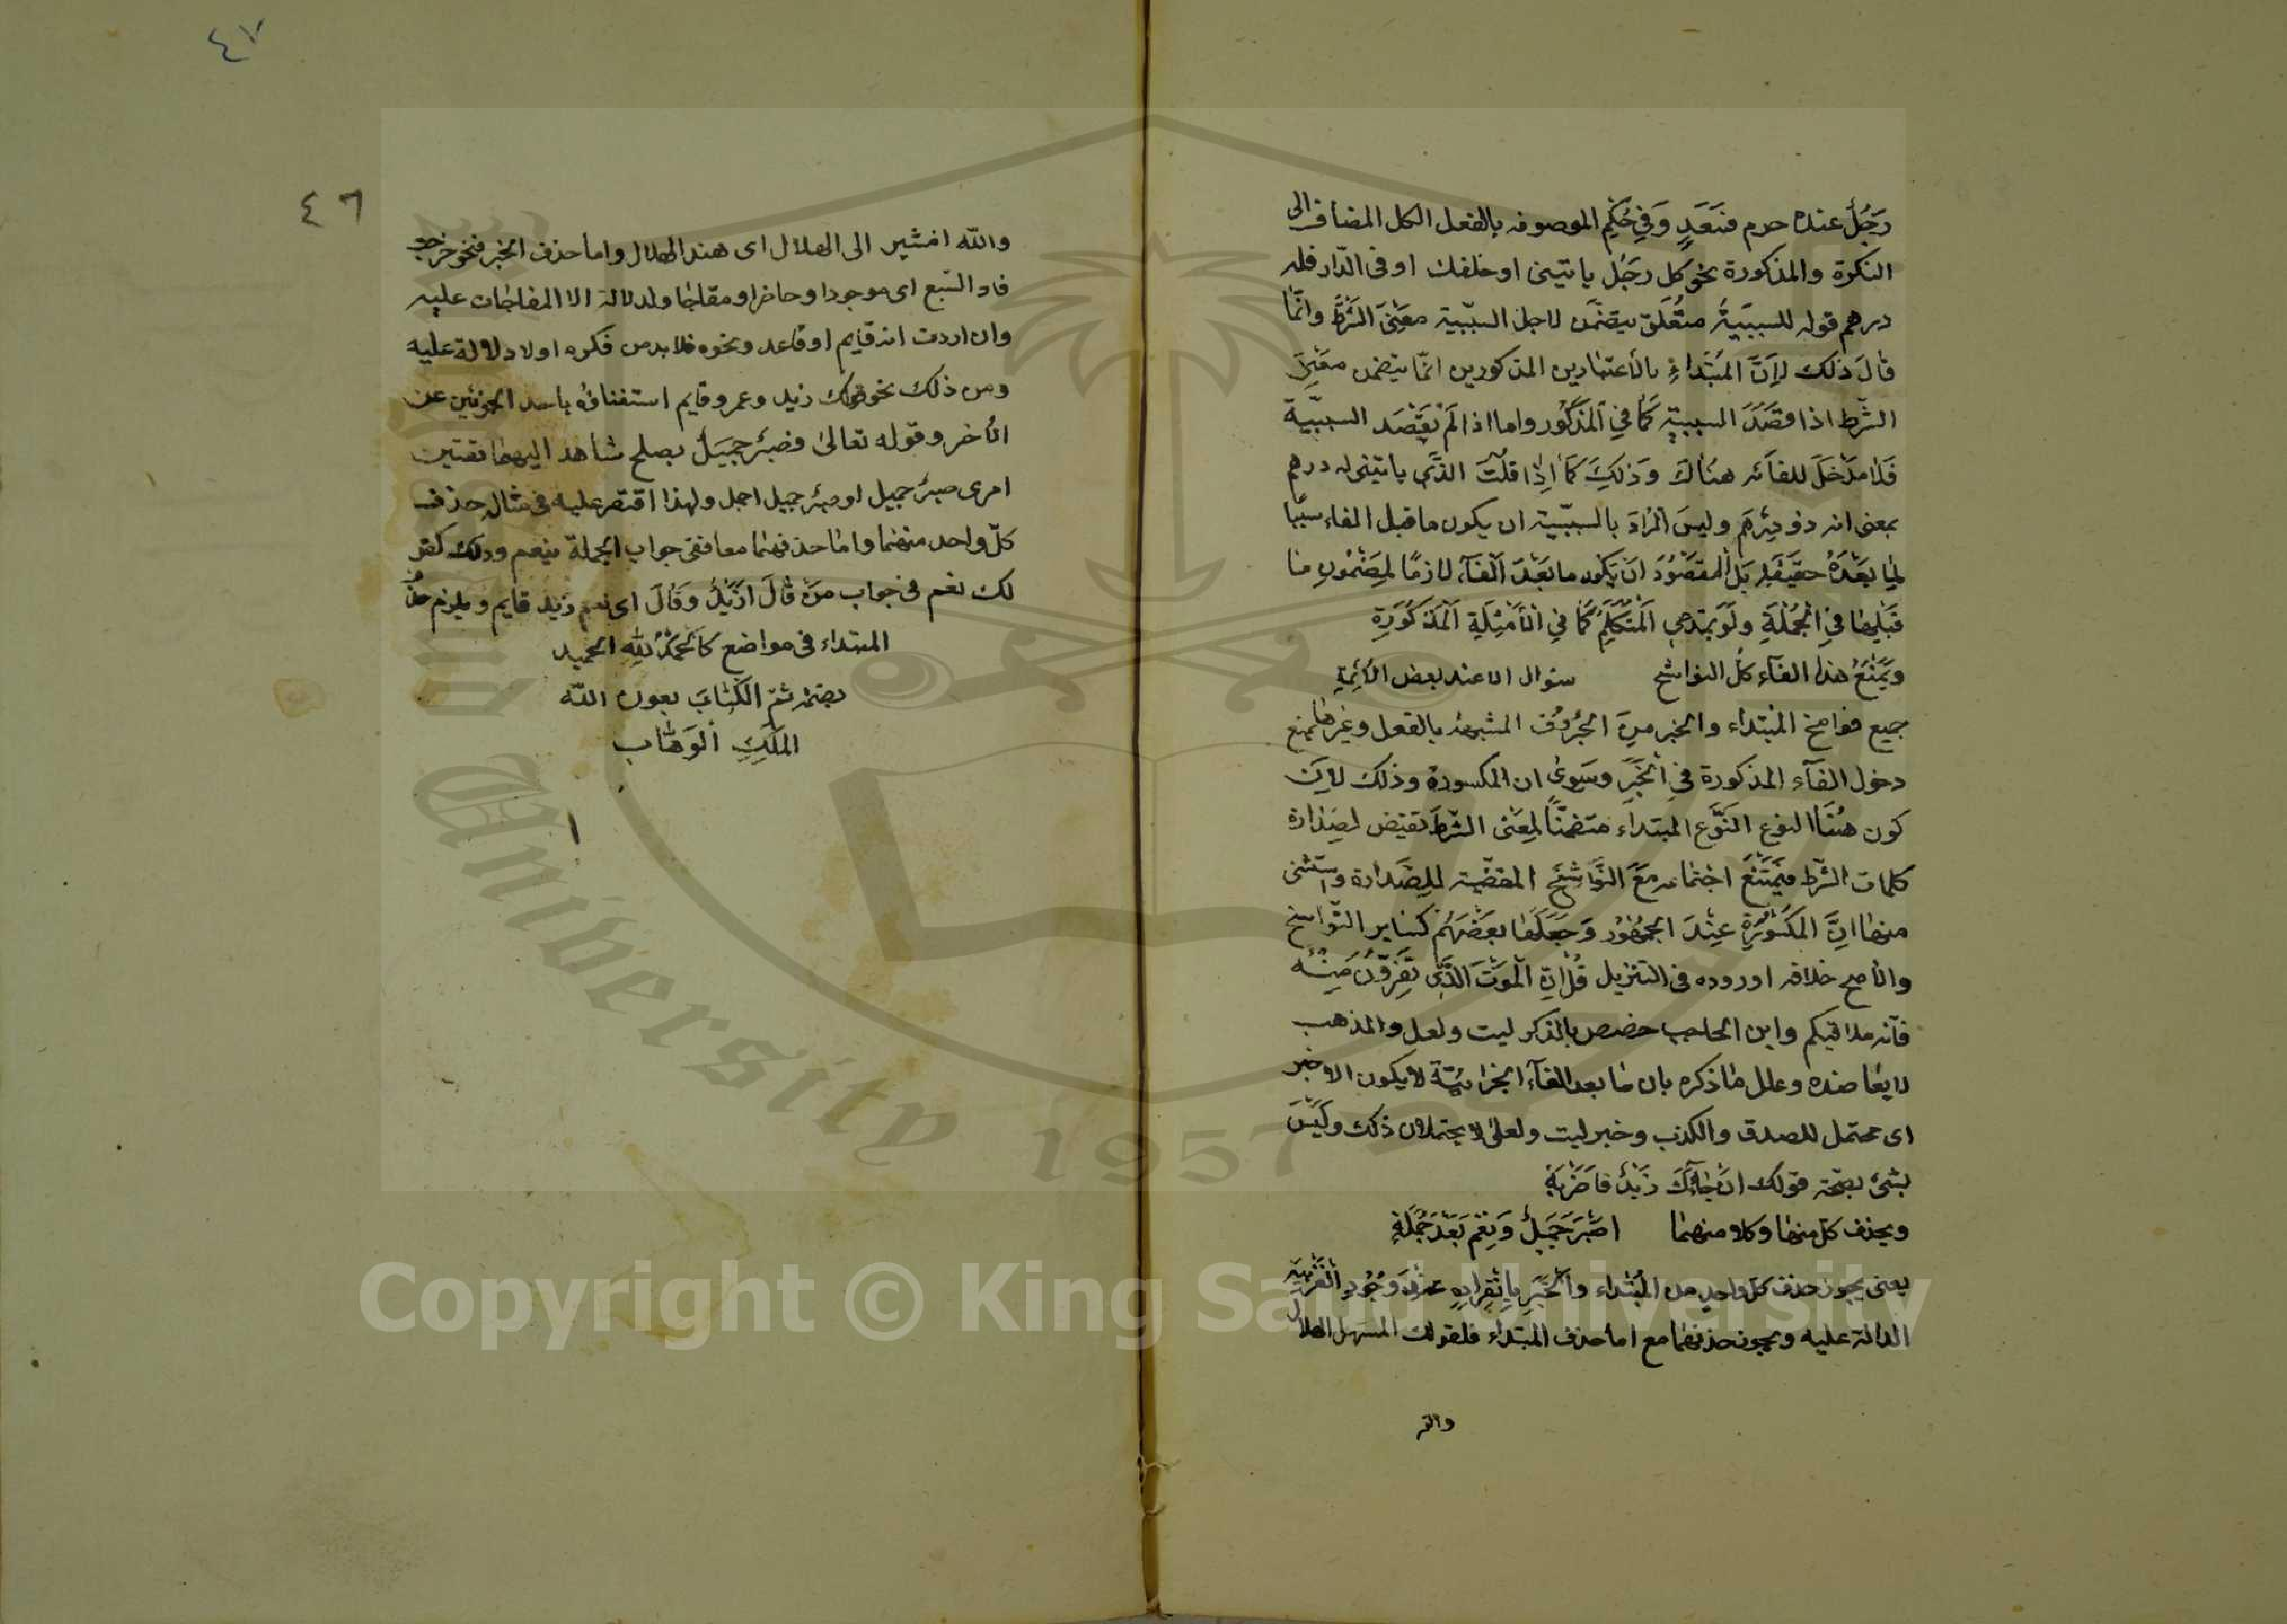 رَجُلٌ عنده حرم فسَعَدٍ وَفِي حُكِمِ الموصوفه بالفعل الكل المضاف الى
النكرة والمذكورة نحو كل رجُل ياتينى او خلفك او فى الدّار فله
درهم قوله للسببيّة متعّلق بتضمّن لاجل السبّبية معنِىَ الشّرطَ وانّما
قالَ ذلك لِانَّ المُبتداءِ بالاعتبارين المذكورين انّما يتضمن معنِىَ
الشّرط اذا قصَدَ السببيّة كَمَا فِي المَذكُور واما اذا لَم يَقصَد السببيّة
فَلا مَدْخَلَ للفآء هنَاكَ وَذلِكَ كَمَا اِذا قلُتَ الذّى ياتينى له درهم
بمعنى انه ذو دِرْهَم وليسَ المُرادَ بالسببّية ان يكون ما قبل الفاء سببًا
لِما بعْدَهُ حقيقة بَل المقصُوُد انَ يكون ما بَعْدَ الفآء لازمًا لمِضَمُونِ ما
قبَلِها فىِ الجُملَةِ ولَو المَتكلِم كمَا فىِ الأمَثِلَةِ المَذكوُرَةِ
ويَمَنعُ هذا الفآء كلُ النواسخ سوا ان الا عند بعض الأئمِةِ
جميع نواسخ المُبتداء والخبر مِن الحُرُوف المشبهة بالفعل وغيرها يمنع
دخول الفآء المذكورة فىِ الخَبَرِ وسَوىِ ان المكسورة وذلك لاِنَ
كون هُنَا النوع النَوّع المبتداء متضمنّاً لمِعَنى الشّرطَ تقتِض لصِدارة
كلمات الشّرط فيَمَتنعَ اجتماعه مَعَ النّواسَخَ المقتضّية للِصَدارة واستثنى
منها انَّ المَكسُورَةِ عنِدَ الجمهُوُر وَجَعَلَها بعَضَهُم كسَايرِ النّواسخ
والاصح خلافه اوروده فى التنزيل قُل انّ الموَتَ الذّى تَفِرّوُن مِنْه
فآنه ملاقيكم وابن الحاجب خصص بالذكر ليت ولعل والمذهب
لا يعاضده وعلل ما ذكره بان ما بعد الفآء الجزائيّة لا يكون الا خبر
اى محتمل للصدق والكذب وخبر ليت ولعل لا يحتملان ذلك وليَسَ
بشئ بصحّة قولك انَ جآئَكَ زَيْدٌ فاضَربِهْ
ويحذف كل منها وكلا منهما اصَبَر جَميَلٌ وَنِعَم بَعْدَ جُملَةٍ
يعنى يجوز حذف كل واحد من المُبتداء والخَبَرِ باِنفِرادِهِ عنِدَ وجُوُدِ القَرِينَة
الدالة عليه ويجوز حذفهما مع اما حذف المبتداء فلقولك المستهل الهلال
والله
٤٧
٤٦
والله اشير الى الهلال اى هند الهلال واما حذف الخبر فنحو خرجت
فاد السّبع اى موجودا وحاضرا ومقاجا ولدلالة الا المفاجات عليه
وان اردت انه قايم او قاعد ونحوه فلا بد من فكره اولا دلالة عليه
ومن ذلك نحو قولك زيد وعمرو قايم استغناؤه باحد الجزئين عن
الأخر وقوله تعالىٰ فصبرٌ جميَلٌ يصلح شاهدا اليهما تقتين
امرى صبرٌ جميل او صبرٌ جميل اجمل ولهذا اقتصر عليه فى مثال حذف
كلّ واحد منهما واما حذفهما معا ففى جواب الجملة بنعم وذلك كقو
لك نعم فى جواب مَن قالَ ازَيْدٌ وقَالَ اى نعم زيد قايم ويلزم حذُف
المبتداء فى مواضع كالحَمْدُ لله الحميد
بضمّه تمّ الكتابَ بعون الله
الملِكِ الوَهّاب